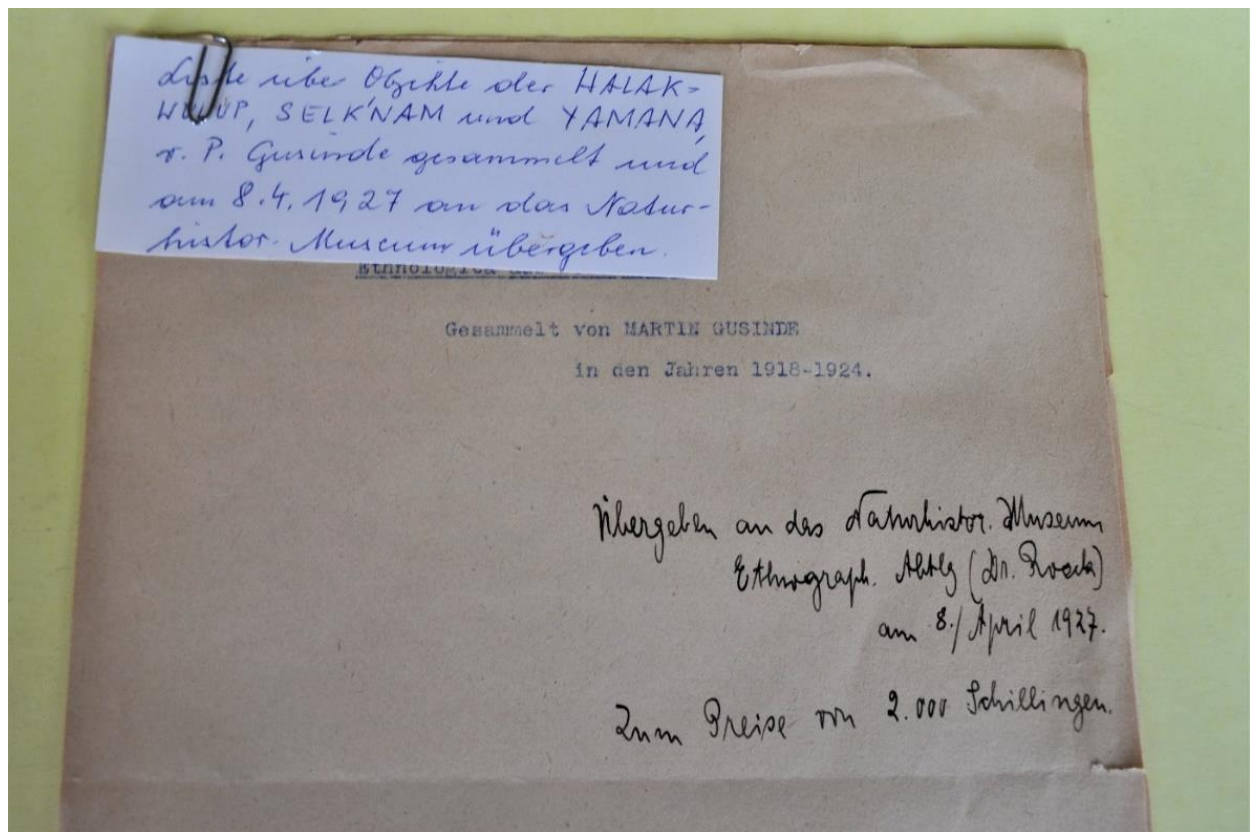 Liste über Objekte der HALAK-
WULUP, SELK'NAM und YAMANA,
v. P. Gusinde gesammelt und
am 8.4.1927 an das Natur-
histor. Museum übergeben.
Ethnologica
Gesammelt von MARTIN GUSINDE
in den Jahren 1918-1924.
Übergeben an das Naturhistor. Museum
Ethnograph. Abtlg (Dr. Roeck)
am 8./April 1927.
Zum Preise von 2.000 Schillingen.